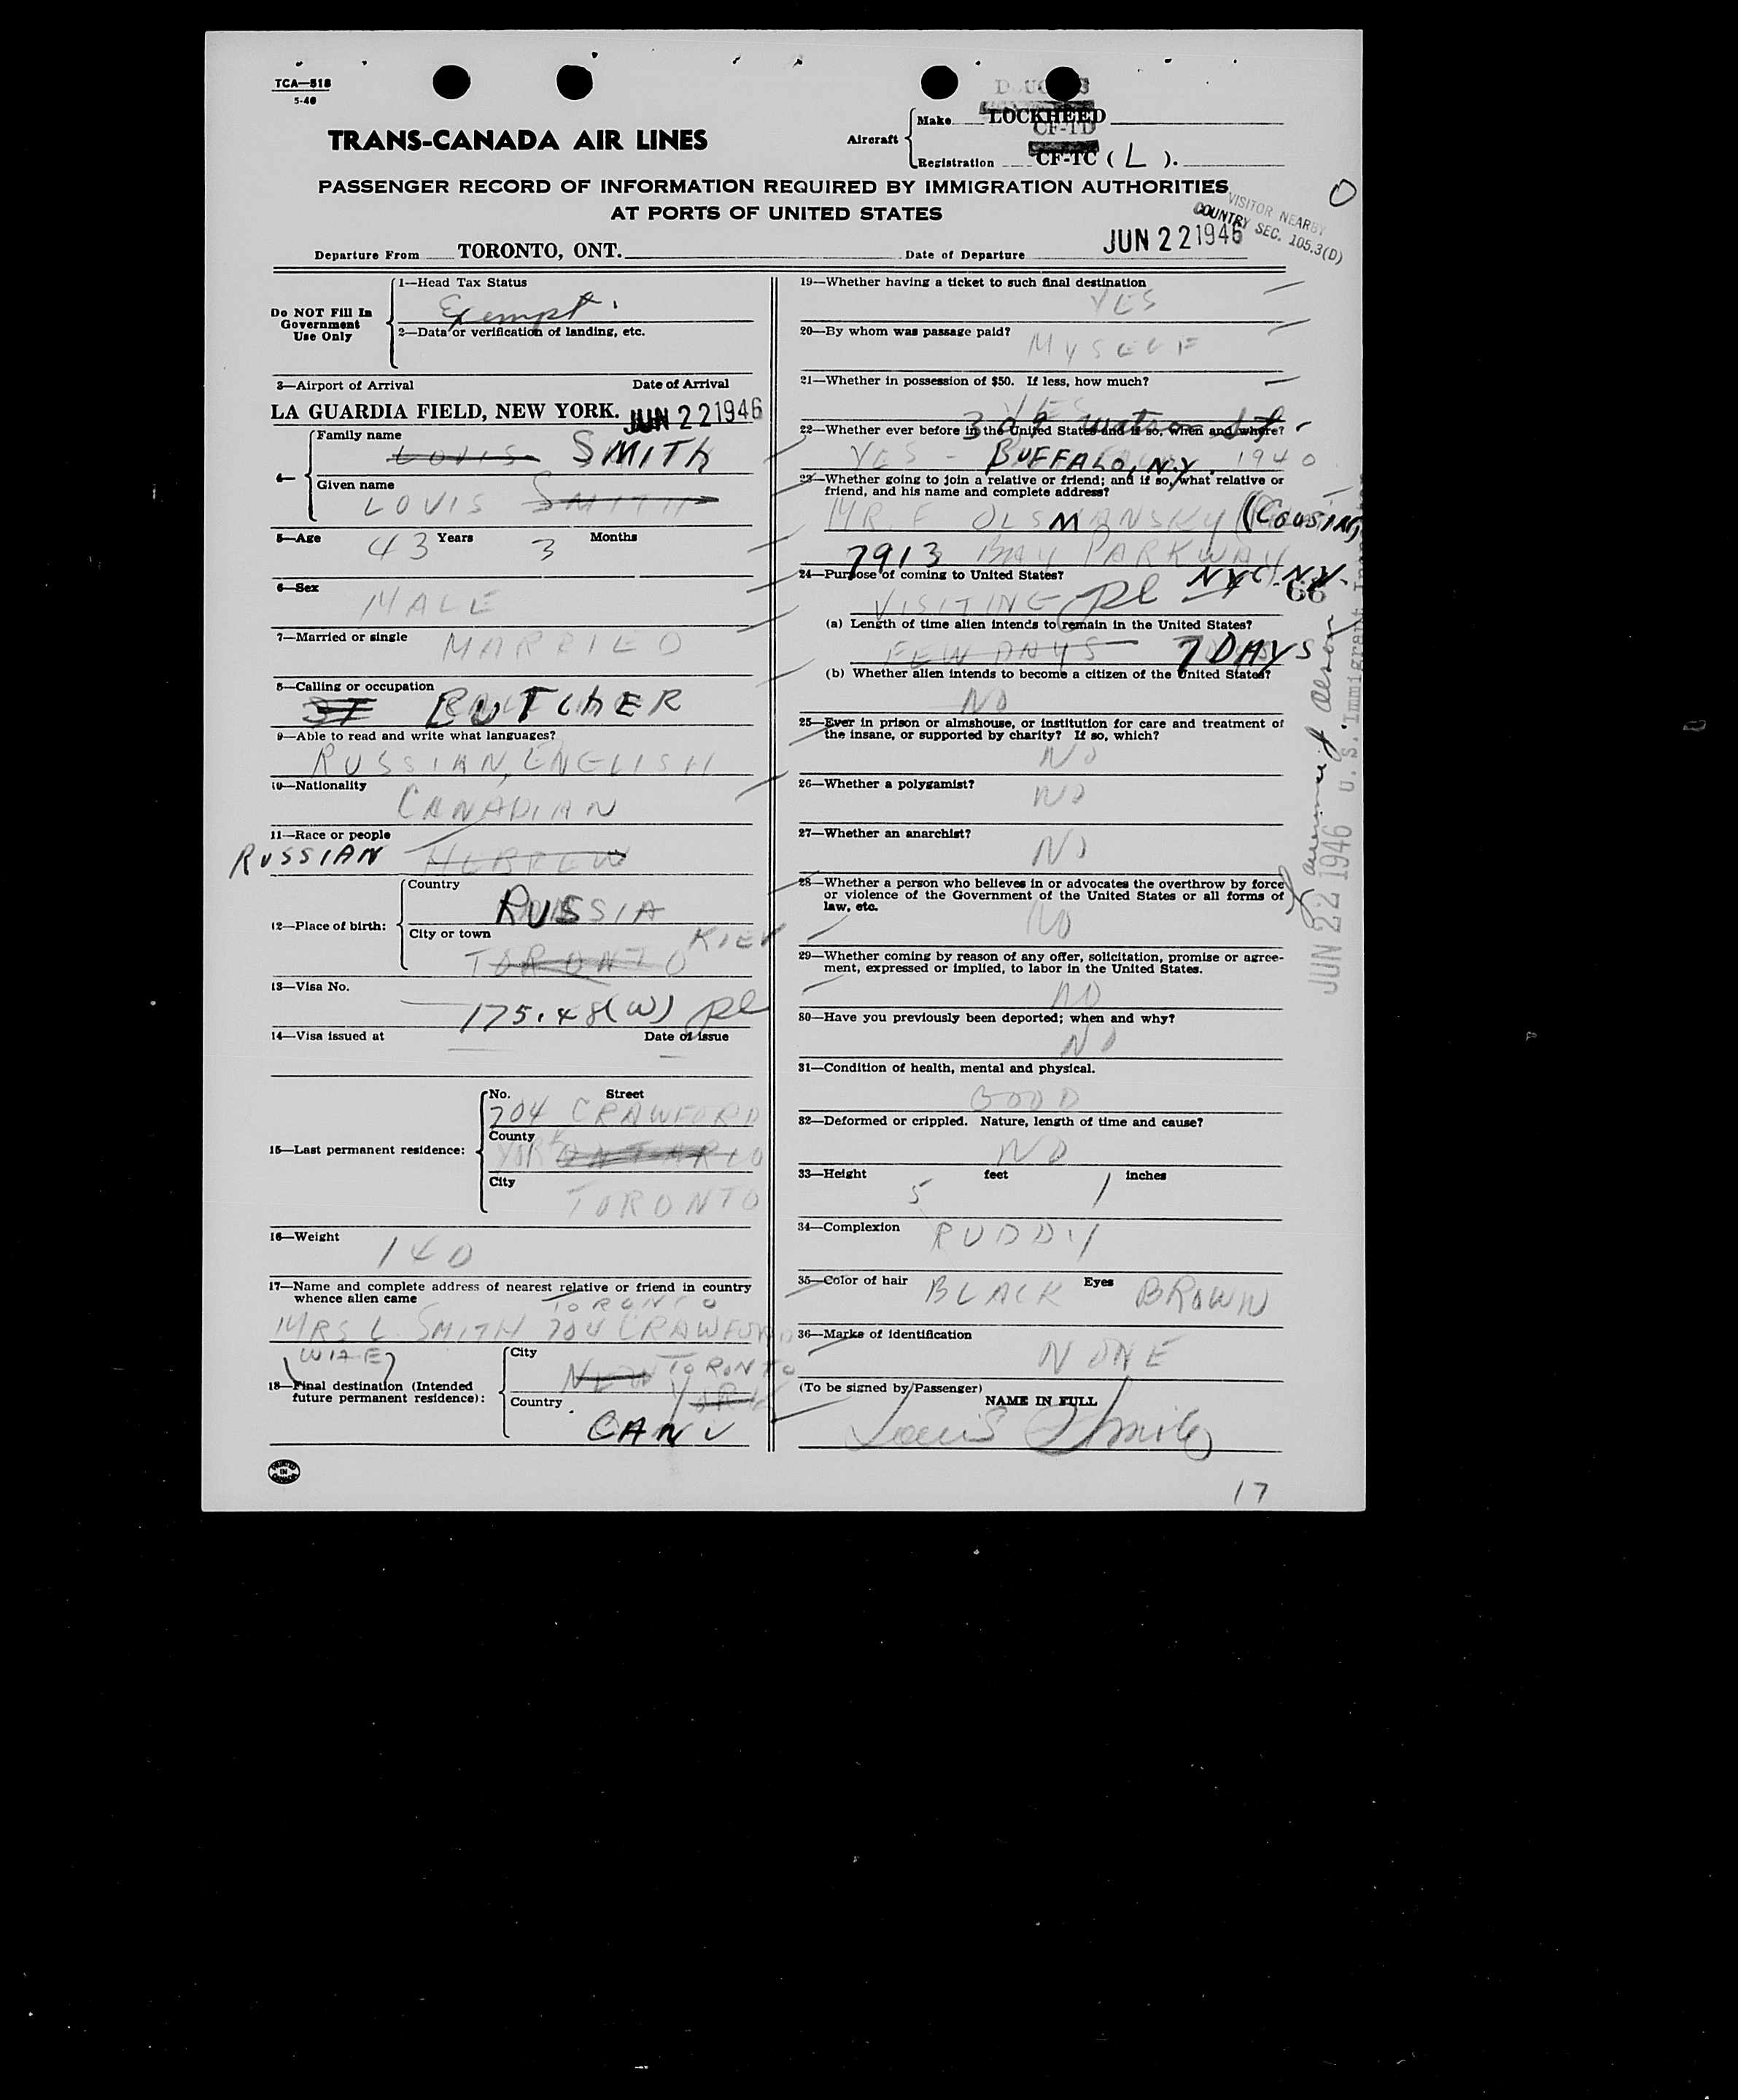 TCA—518
5-40
TRANS-CANADA AIR LINES
Aircraft
Make LOCKHEED
CF-TD
Registration CF-TC ( L ).
PASSENGER RECORD OF INFORMATION REQUIRED BY IMMIGRATION AUTHORITIES
AT PORTS OF UNITED STATES
VISITOR NEARBY
COUNTRY SEC. 105.3(D)
Departure From TORONTO, ONT. Date of Departure JUN 22 1946
Do NOT Fill In
Government
Use Only
1—Head Tax Status
Exempt
2—Data or verification of landing, etc.
3—Airport of Arrival Date of Arrival
LA GUARDIA FIELD, NEW YORK. JUN 22 1946
4—
Family name
LOUIS SMITH
Given name
LOUIS SMITH
5—Age 43 Years 3 Months
6—Sex
MALE
7—Married or single
MARRIED
8—Calling or occupation
BUTCHER
9—Able to read and write what languages?
RUSSIAN, ENGLISH
10—Nationality
CANADIAN
11—Race or people
RUSSIAN HEBREW
12—Place of birth:
Country
RUSSIA
City or town
TORONTO KIEV
13—Visa No.
175.48(W)
14—Visa issued at Date of issue
15—Last permanent residence:
No. Street
704 CRAWFORD
County
YORK ONTARIO
City
TORONTO
16—Weight
140
17—Name and complete address of nearest relative or friend in country
whence alien came
TORONTO
MRS L. SMITH 704 CRAWFORD
(WIFE)
18—Final destination (Intended
future permanent residence):
City
NEW TORONTO
YORK
Country
CAN
PRINTED
IN
CANADA
19—Whether having a ticket to such final destination
YES
20—By whom was passage paid?
MYSELF
21—Whether in possession of $50. If less, how much?
YES
309 Watson St.
22—Whether ever before in the United States and if so, when and where?
YES - BUFFALO, N.Y. 1940
23—Whether going to join a relative or friend; and if so, what relative or
friend, and his name and complete address?
MR. F OLSMANSKY (COUSIN)
7913 BAY PARKWAY
NYC. N.Y.
24—Purpose of coming to United States?
VISITING
66
(a) Length of time alien intends to remain in the United States?
FEW DAYS 7 DAYS
(b) Whether alien intends to become a citizen of the United States?
NO
25—Ever in prison or almshouse, or institution for care and treatment of
the insane, or supported by charity? If so, which?
NO
26—Whether a polygamist?
NO
27—Whether an anarchist?
NO
28—Whether a person who believes in or advocates the overthrow by force
or violence of the Government of the United States or all forms of
law, etc.
NO
29—Whether coming by reason of any offer, solicitation, promise or agree-
ment, expressed or implied, to labor in the United States.
NO
30—Have you previously been deported; when and why?
NO
31—Condition of health, mental and physical.
GOOD
32—Deformed or crippled. Nature, length of time and cause?
NO
33—Height 5 feet 1 inches
34—Complexion RUDDY
35—Color of hair BLACK Eyes BROWN
36—Marks of identification
NONE
(To be signed by Passenger)
NAME IN FULL
Louis Smith
17
JUN 22 1946 U. S. Immigrant